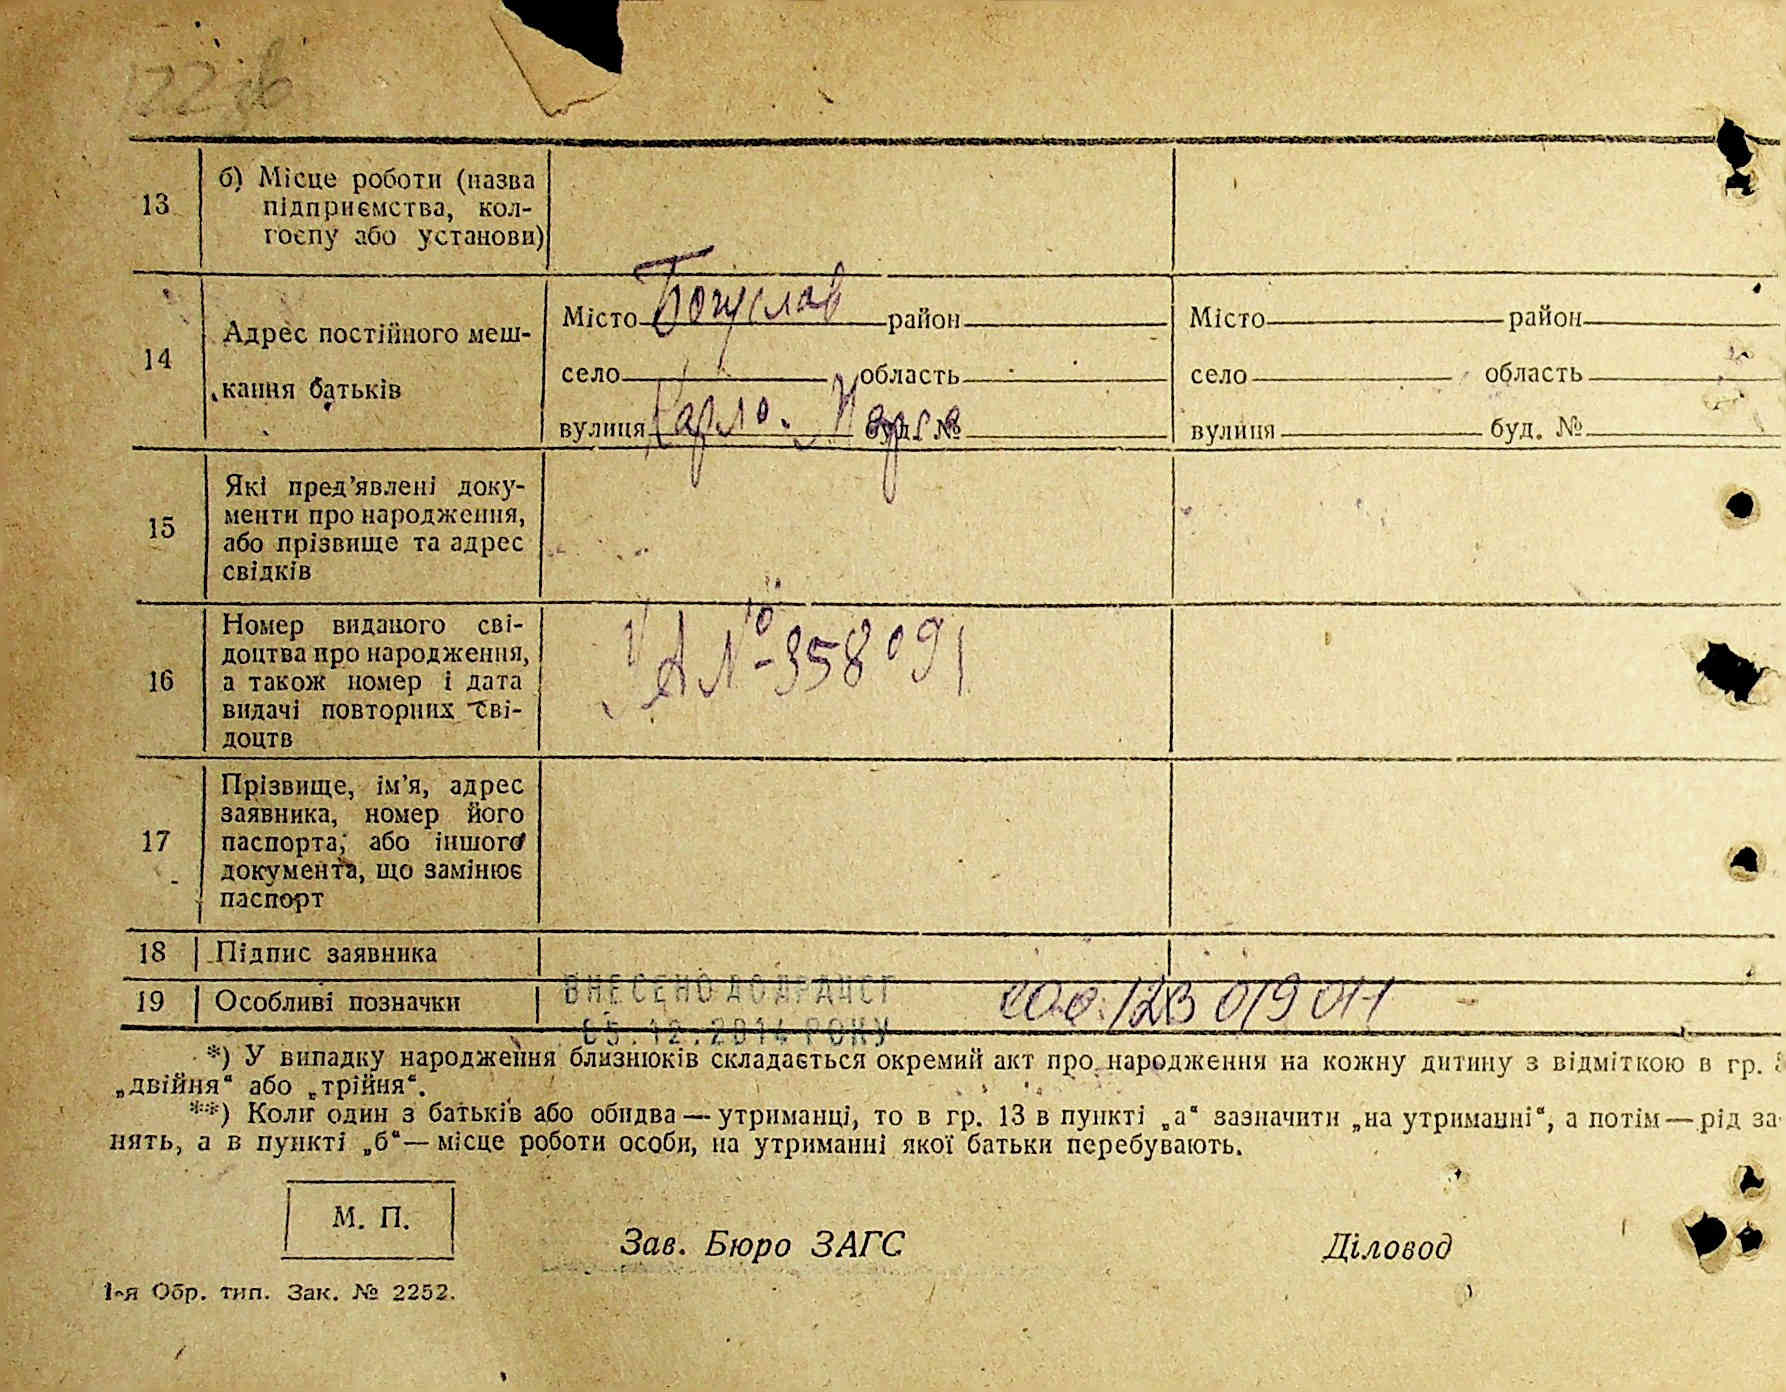 122 зв
13
б) Місце роботи (назва
підприємства, кол-
госпу або установи)
14
Адрес постійного меш-
кання батьків
Місто Богуслав район
село область
вулиця Карло. Маркса буд. №
Місто район
село область
вулиця буд. №
15
Які пред’явлені доку-
менти про народження,
або прізвище та адрес
свідків
16
Номер виданого сві-
доцтва про народження,
а також номер і дата
видачі повторних сві-
доцтв
УА № 358091
17
Прізвище, ім’я, адрес
заявника, номер його
паспорта, або іншого
документа, що замінює
паспорт
18 Підпис заявника
19 Особливі позначки
ВНЕСЕНО ДО ДРАЦСГ
05.12.2014 РОКУ
*) У випадку народження близнюків складається окремий акт про народження на кожну дитину з відміткою в гр.
„двійня“ або „трійня“.
**) Коли один з батьків або обидва — утриманці, то в гр. 13 в пункті „а“ зазначити „на утриманні“, а потім — рід за-
нять, а в пункті „б“ — місце роботи особи, на утриманні якої батьки перебувають.
М. П.
Зав. Бюро ЗАГС
Діловод
1-я Обр. тип. Зак. № 2252.